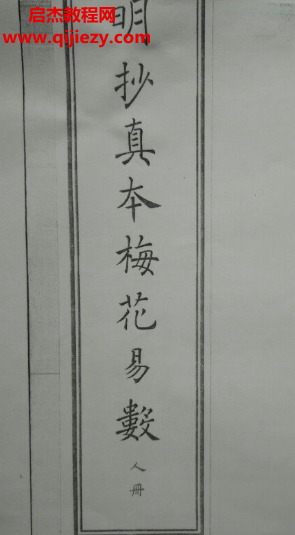 启杰教程网
www.qijiezy.com
明抄真本梅花易數
人冊